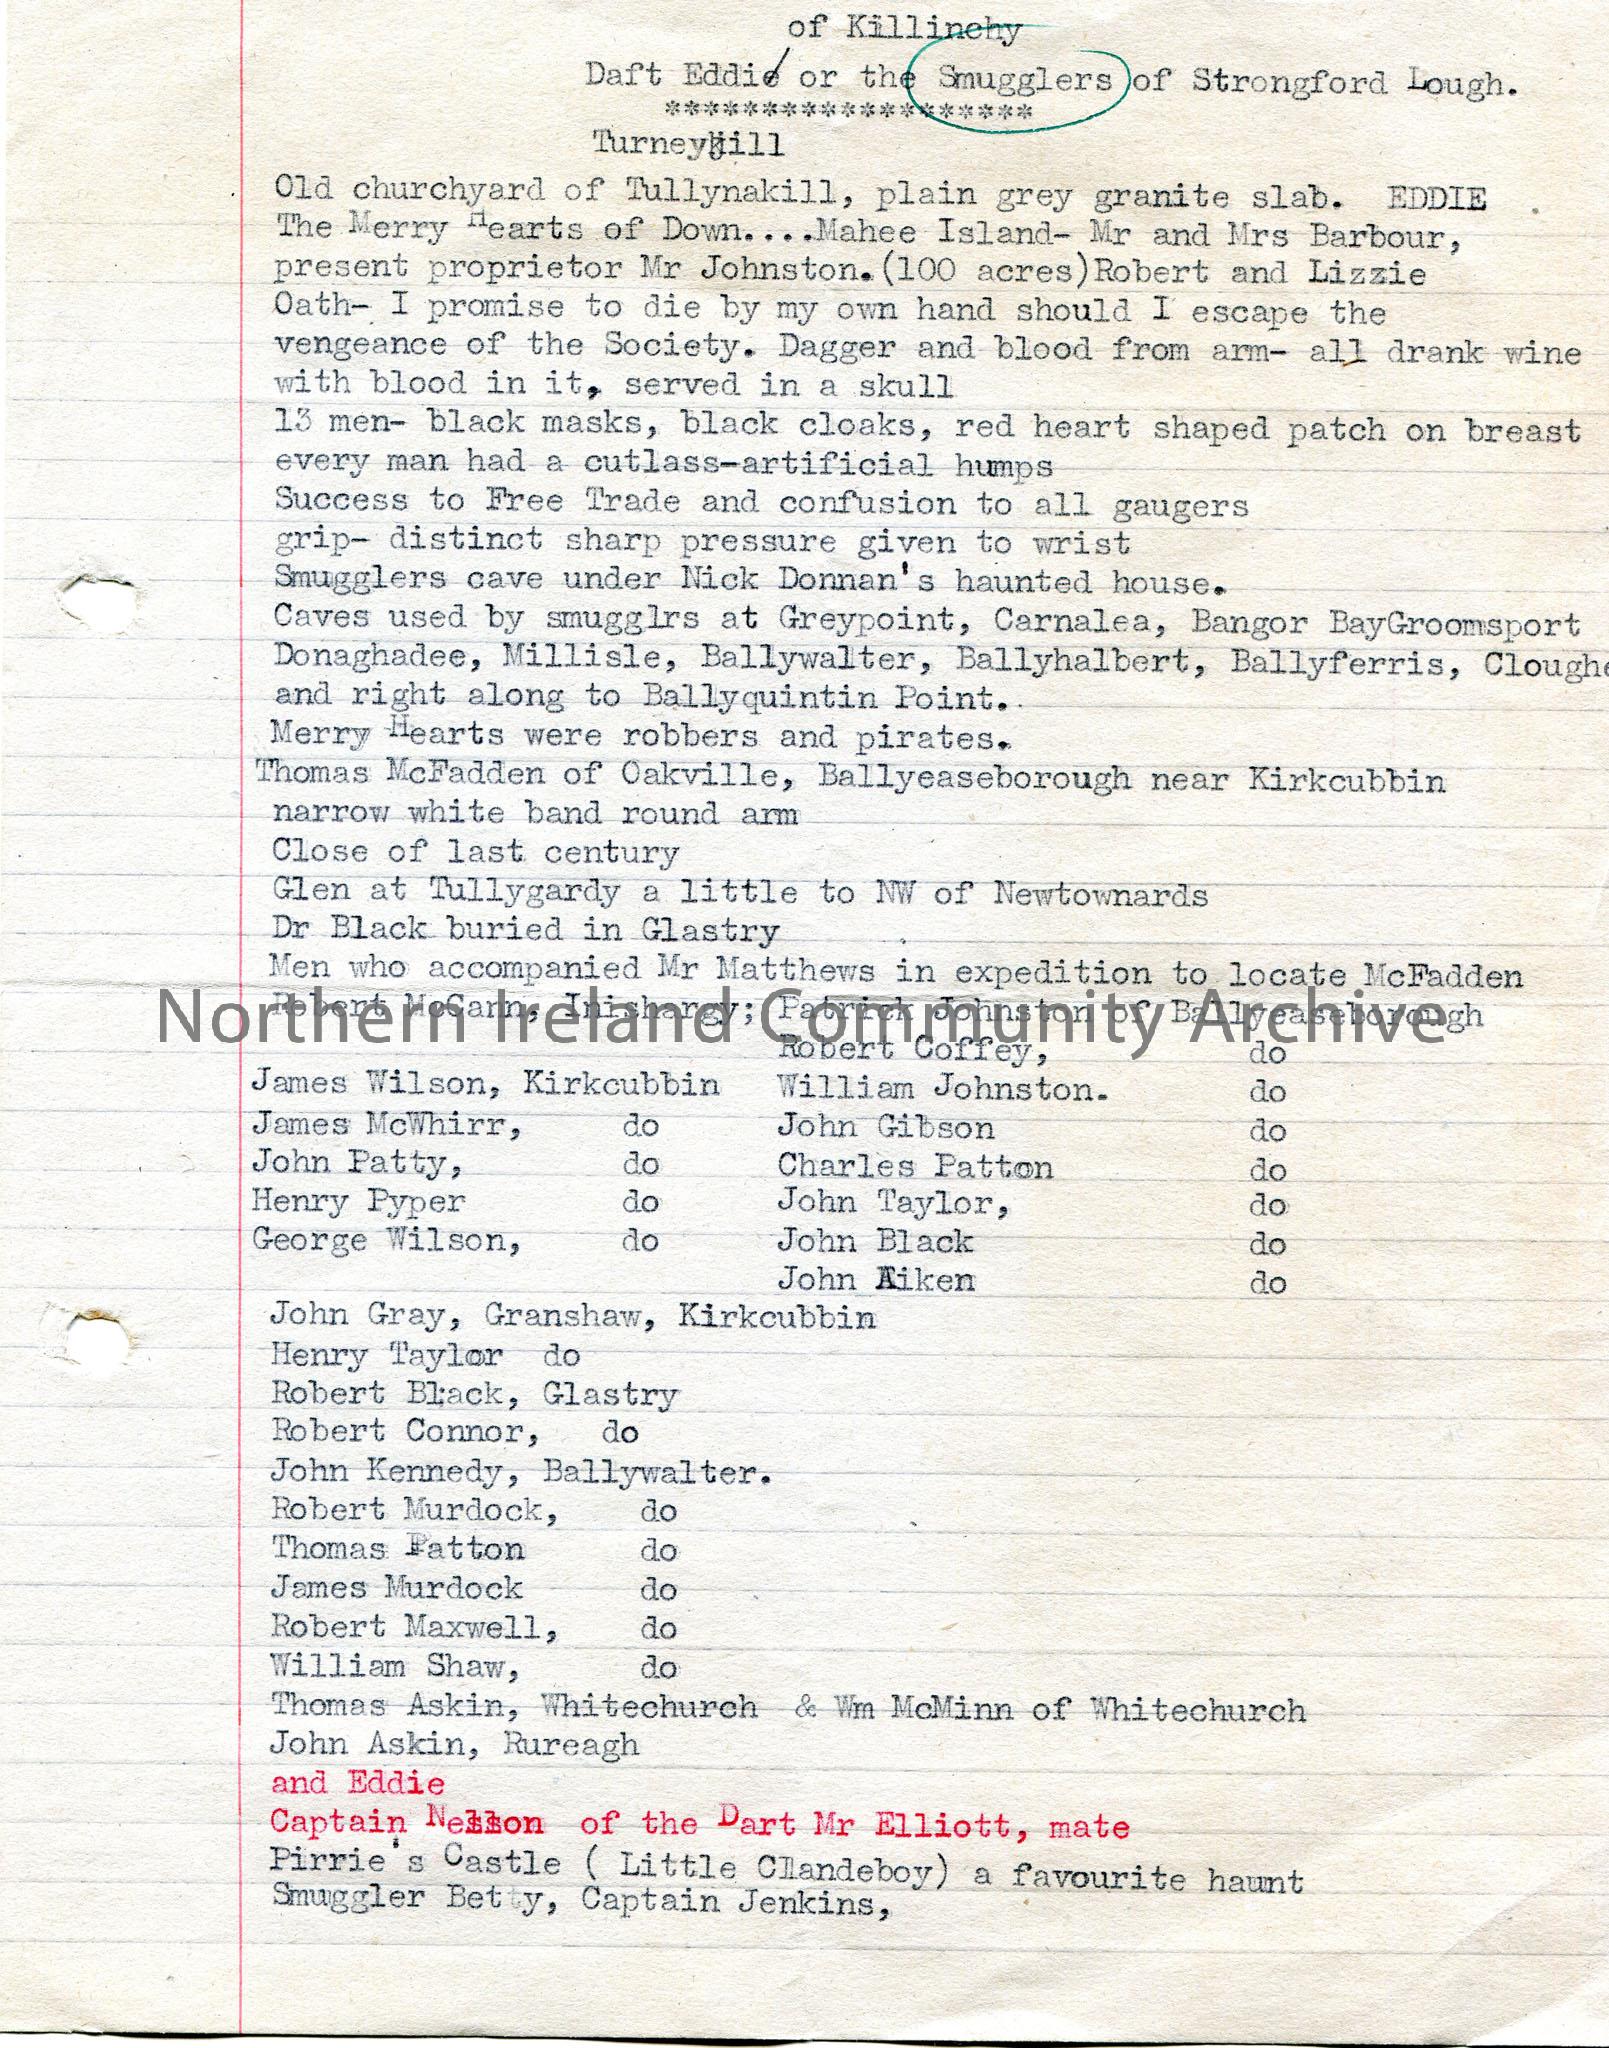 of Killinchy
Daft Eddie/ or the Smugglers of Strongford Lough.
*******************
Turneykill
Old churchyard of Tullynakill, plain grey granite slab. EDDIE
The Merry Hearts of Down....Mahee Island- Mr and Mrs Barbour,
present proprietor Mr Johnston.(100 acres)Robert and Lizzie
Oath- I promise to die by my own hand should I escape the
vengeance of the Society. Dagger and blood from arm- all drank wine
with blood in it, served in a skull
13 men- black masks, black cloaks, red heart shaped patch on breast
every man had a cutlass-artificial humps
Success to Free Trade and confusion to all gaugers
grip- distinct sharp pressure given to wrist
Smugglers cave under Nick Donnan's haunted house.
Caves used by smugglrs at Greypoint, Carnalea, Bangor BayGroomsport
Donaghadee, Millisle, Ballywalter, Ballyhalbert, Ballyferris, Cloughe
and right along to Ballyquintin Point.
Merry Hearts were robbers and pirates.
Thomas McFadden of Oakville, Ballyeaseborough near Kirkcubbin
narrow white band round arm
Close of last century
Glen at Tullygardy a little to NW of Newtownards
Dr Black buried in Glastry
Men who accompanied Mr Matthews in expedition to locate McFadden
Robert McCann, Inishargy; Patrick Johnston of Ballyeaseborough
Northern Ireland Community Archive
Robert Coffey, do
James Wilson, Kirkcubbin William Johnston. do
James McWhirr, do John Gibson do
John Patty, do Charles Patton do
Henry Pyper do John Taylor, do
George Wilson, do John Black do
John Aiken do
John Gray, Granshaw, Kirkcubbin
Henry Taylor do
Robert Black, Glastry
Robert Connor, do
John Kennedy, Ballywalter.
Robert Murdock, do
Thomas Patton do
James Murdock do
Robert Maxwell, do
William Shaw, do
Thomas Askin, Whitechurch & Wm McMinn of Whitechurch
John Askin, Rureagh
and Eddie
Captain of the Dart Mr Elliott, mate
Pirrie's Castle ( Little Clandeboy) a favourite haunt
Smuggler Betty, Captain Jenkins,